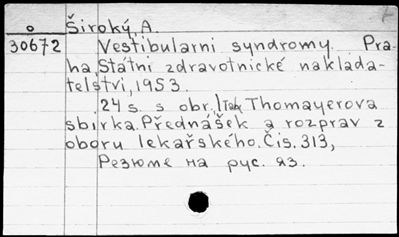 o Široký, A.
30672 Vestibularni syndromy. Pra-
ha, Státni zdravotnické naklada-
telství, 1953.
24 s. s obr., 1 tab. Thomayerova
sbirka. Přednášek a rozprav z
oboru lekařského. Čis. 313,
Резюме на рус. яз.